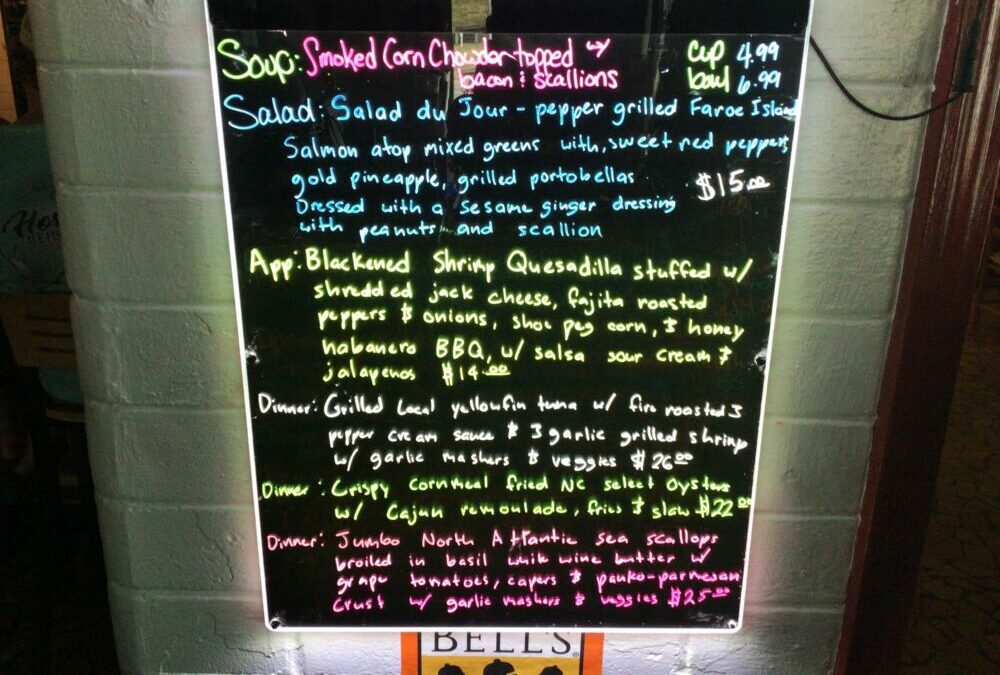 Soup: Smoked Corn Chowder topped w/
bacon & scallions
Cup 4.99
bowl 6.99
Salad: Salad du Jour - pepper grilled Faroe Island
Salmon atop mixed greens with, sweet red peppers
gold pineapple, grilled portobellas
Dressed with a sesame ginger dressing
with peanuts and scallion
$15.00
App: Blackened Shrimp Quesadilla stuffed w/
shredded jack cheese, fajita roasted
peppers & onions, shoe peg corn, & honey
habanero BBQ, w/ salsa sour cream &
jalapenos $14.00
Dinner: Grilled Local yellowfin tuna w/ fire roasted 3
pepper cream sauce & 3 garlic grilled shrimp
w/ garlic mashers & veggies $26.00
Dinner: Crispy cornmeal fried NC select Oysters
w/ Cajun remoulade, fries & slaw $22.00
Dinner: Jumbo North Atlantic sea scallops
broiled in basil white wine butter w/
grape tomatoes, capers & panko-parmesan
crust w/ garlic mashers & veggies $25.00
BELL'S